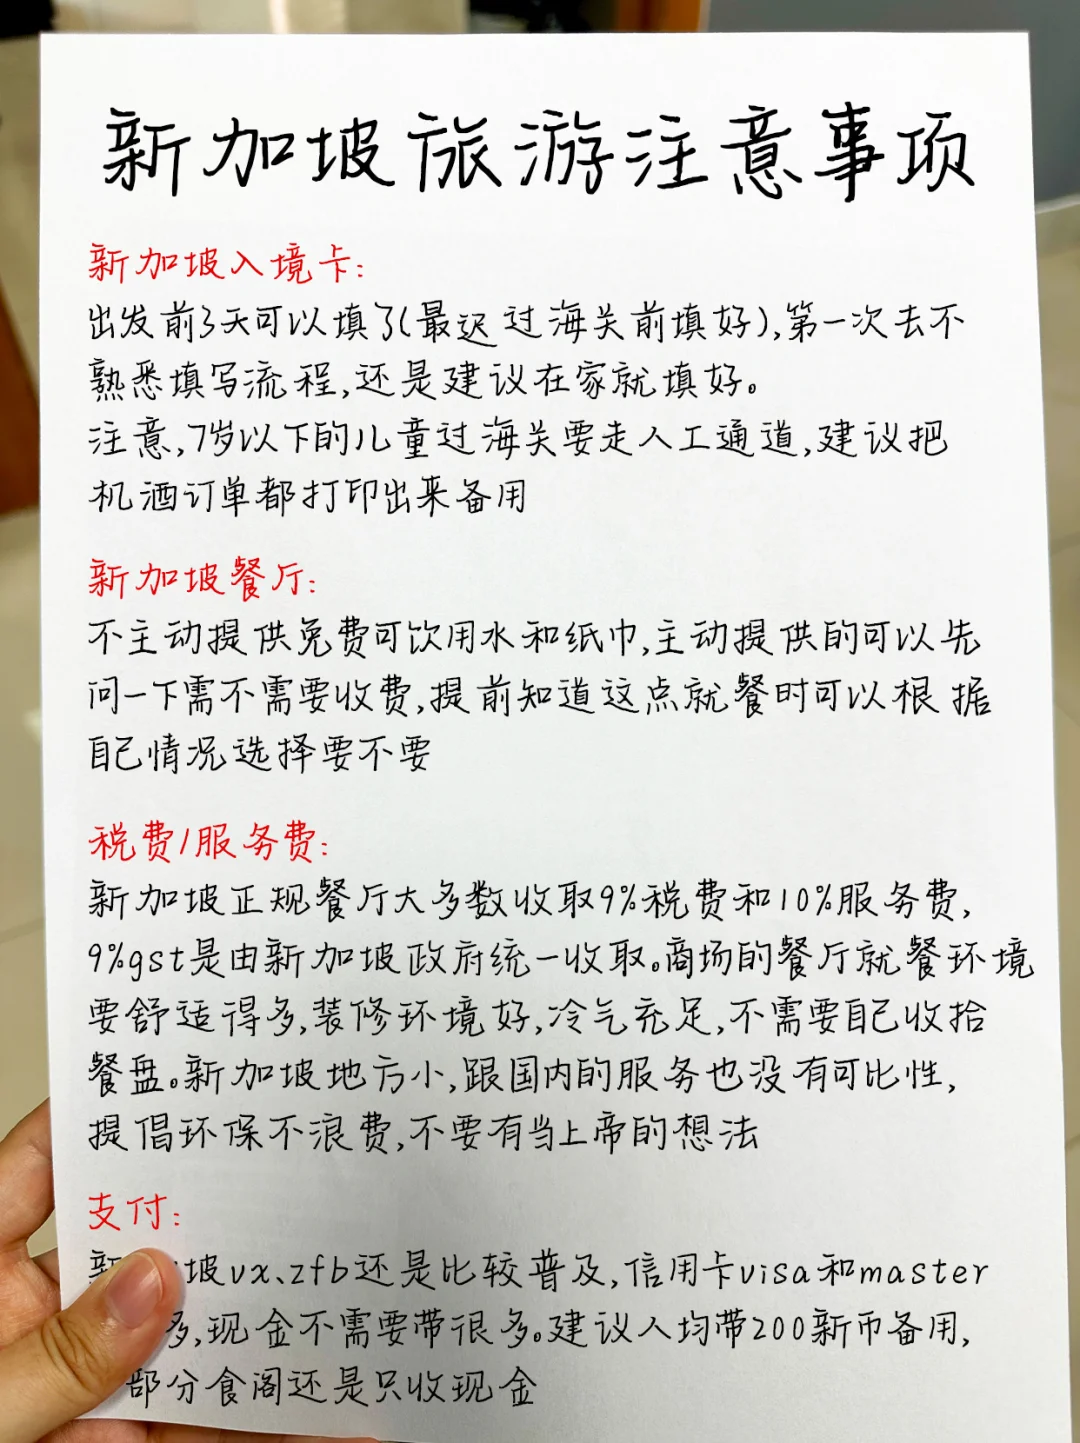 新加坡旅游注意事项
新加坡入境卡:
出发前3天可以填了(最迟过海关前填好),第一次去不
熟悉填写流程,还是建议在家就填好。
注意,7岁以下的儿童过海关要走人工通道,建议把
机酒订单都打印出来备用
新加坡餐厅:
不主动提供免费可饮用水和纸巾,主动提供的可以先
问一下需不需要收费,提前知道这点就餐时可以根据
自己情况选择要不要
税费/服务费:
新加坡正规餐厅大多数收取9%税费和10%服务费,
9%gst是由新加坡政府统一收取。商场的餐厅就餐环境
要舒适得多,装修环境好,冷气充足,不需要自己收拾
餐盘。新加坡地方小,跟国内的服务也没有可比性,
提倡环保不浪费,不要有当上帝的想法
支付:
新坡vx、zfb还是比较普及,信用卡visa和master
多,现金不需要带很多。建议人均带200新币备用,
部分食阁还是只收现金